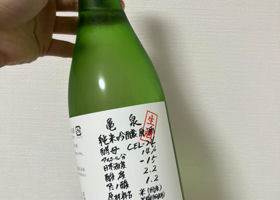 亀泉
生酒
純米吟醸原酒
酵母 CEL-24
アルコール分
日本酒度 -15
酸度 2.2
アミノ酸 1.2
原材料名 米